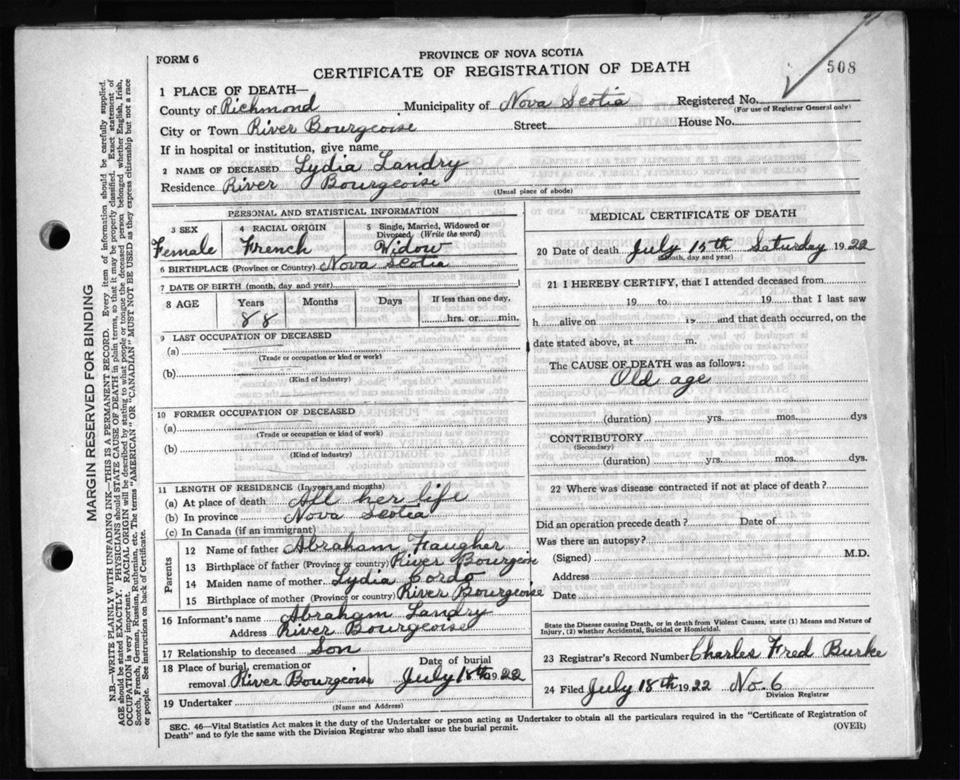 PROVINCE OF NOVA SCOTIA
FORM 6
CERTIFICATE OF REGISTRATION OF DEATH
508
1 PLACE OF DEATH—
County of Richmond Municipality of Nova Scotia Registered No.
(For use of Registrar General only)
City or Town River Bourgeoise Street House No.
If in hospital or institution, give name
2 NAME OF DECEASED Lydia Landry
Residence River Bourgeoise
(Usual place of abode)
PERSONAL AND STATISTICAL INFORMATION
3 SEX 4 RACIAL ORIGIN 5 Single, Married, Widowed or Divorced (Write the word)
Female French Widow
6 BIRTHPLACE (Province or Country) Nova Scotia
7 DATE OF BIRTH (month, day and year)
8 AGE Years Months Days If less than one day,
88 hrs. or min.
9 LAST OCCUPATION OF DECEASED
(a)
(Trade or occupation or kind or work)
(b)
(Kind of industry)
10 FORMER OCCUPATION OF DECEASED
(a)
(Trade or occupation or kind of work)
(b)
(Kind of industry)
11 LENGTH OF RESIDENCE (In years and months)
(a) At place of death All her life
(b) In province Nova Scotia
(c) In Canada (if an immigrant)
Parents
12 Name of father Abraham Faugher
13 Birthplace of father (Province or country) River Bourgeoise
14 Maiden name of mother Lydia Cordo
15 Birthplace of mother (Province or country) River Bourgeoise
16 Informant's name Abraham Landry
Address River Bourgeoise
17 Relationship to deceased Son
18 Place of burial, cremation or removal River Bourgeoise
Date of burial
July 18th 1922
19 Undertaker
(Name and Address)
MEDICAL CERTIFICATE OF DEATH
20 Date of death July 15th Saturday 1922
(Month, day and year)
21 I HEREBY CERTIFY, that I attended deceased from
19 to 19 that I last saw
h alive on 19 and that death occurred, on the
date stated above, at m.
The CAUSE OF DEATH was as follows:
Old age
(duration) yrs. mos. dys
CONTRIBUTORY
(Secondary)
(duration) yrs. mos. dys.
22 Where was disease contracted if not at place of death?
Did an operation precede death? Date of
Was there an autopsy?
(Signed) M.D.
Address
Date
State the Disease causing Death, or in death from Violent Causes, state (1) Means and Nature of
Injury, (2) whether Accidental, Suicidal or Homicidal.
23 Registrar's Record Number Charles Fred Burke
24 Filed July 18th 1922 No. 6
Division Registrar
SEC. 46—Vital Statistics Act makes it the duty of the Undertaker or person acting as Undertaker to obtain all the particulars required in the "Certificate of Registration of
Death" and to fyle the same with the Division Registrar who shall issue the burial permit.
(OVER)
MARGIN RESERVED FOR BINDING
N.B.—WRITE PLAINLY WITH UNFADING INK—THIS IS A PERMANENT RECORD. Every item of information should be carefully supplied.
AGE should be stated EXACTLY. PHYSICIANS should STATE CAUSE OF DEATH in plain terms, so that it may be properly classified. Exact statement of
OCCUPATION is very important. RACIAL ORIGIN will be described by stating to what people or tongue the deceased person belonged whether English, Irish,
Scotch, French, German, Russian, Ruthenian, etc. The terms "AMERICAN" OR "CANADIAN" MUST NOT BE USED as they express citizenship but not a race
or people. See instructions on back of Certificate.